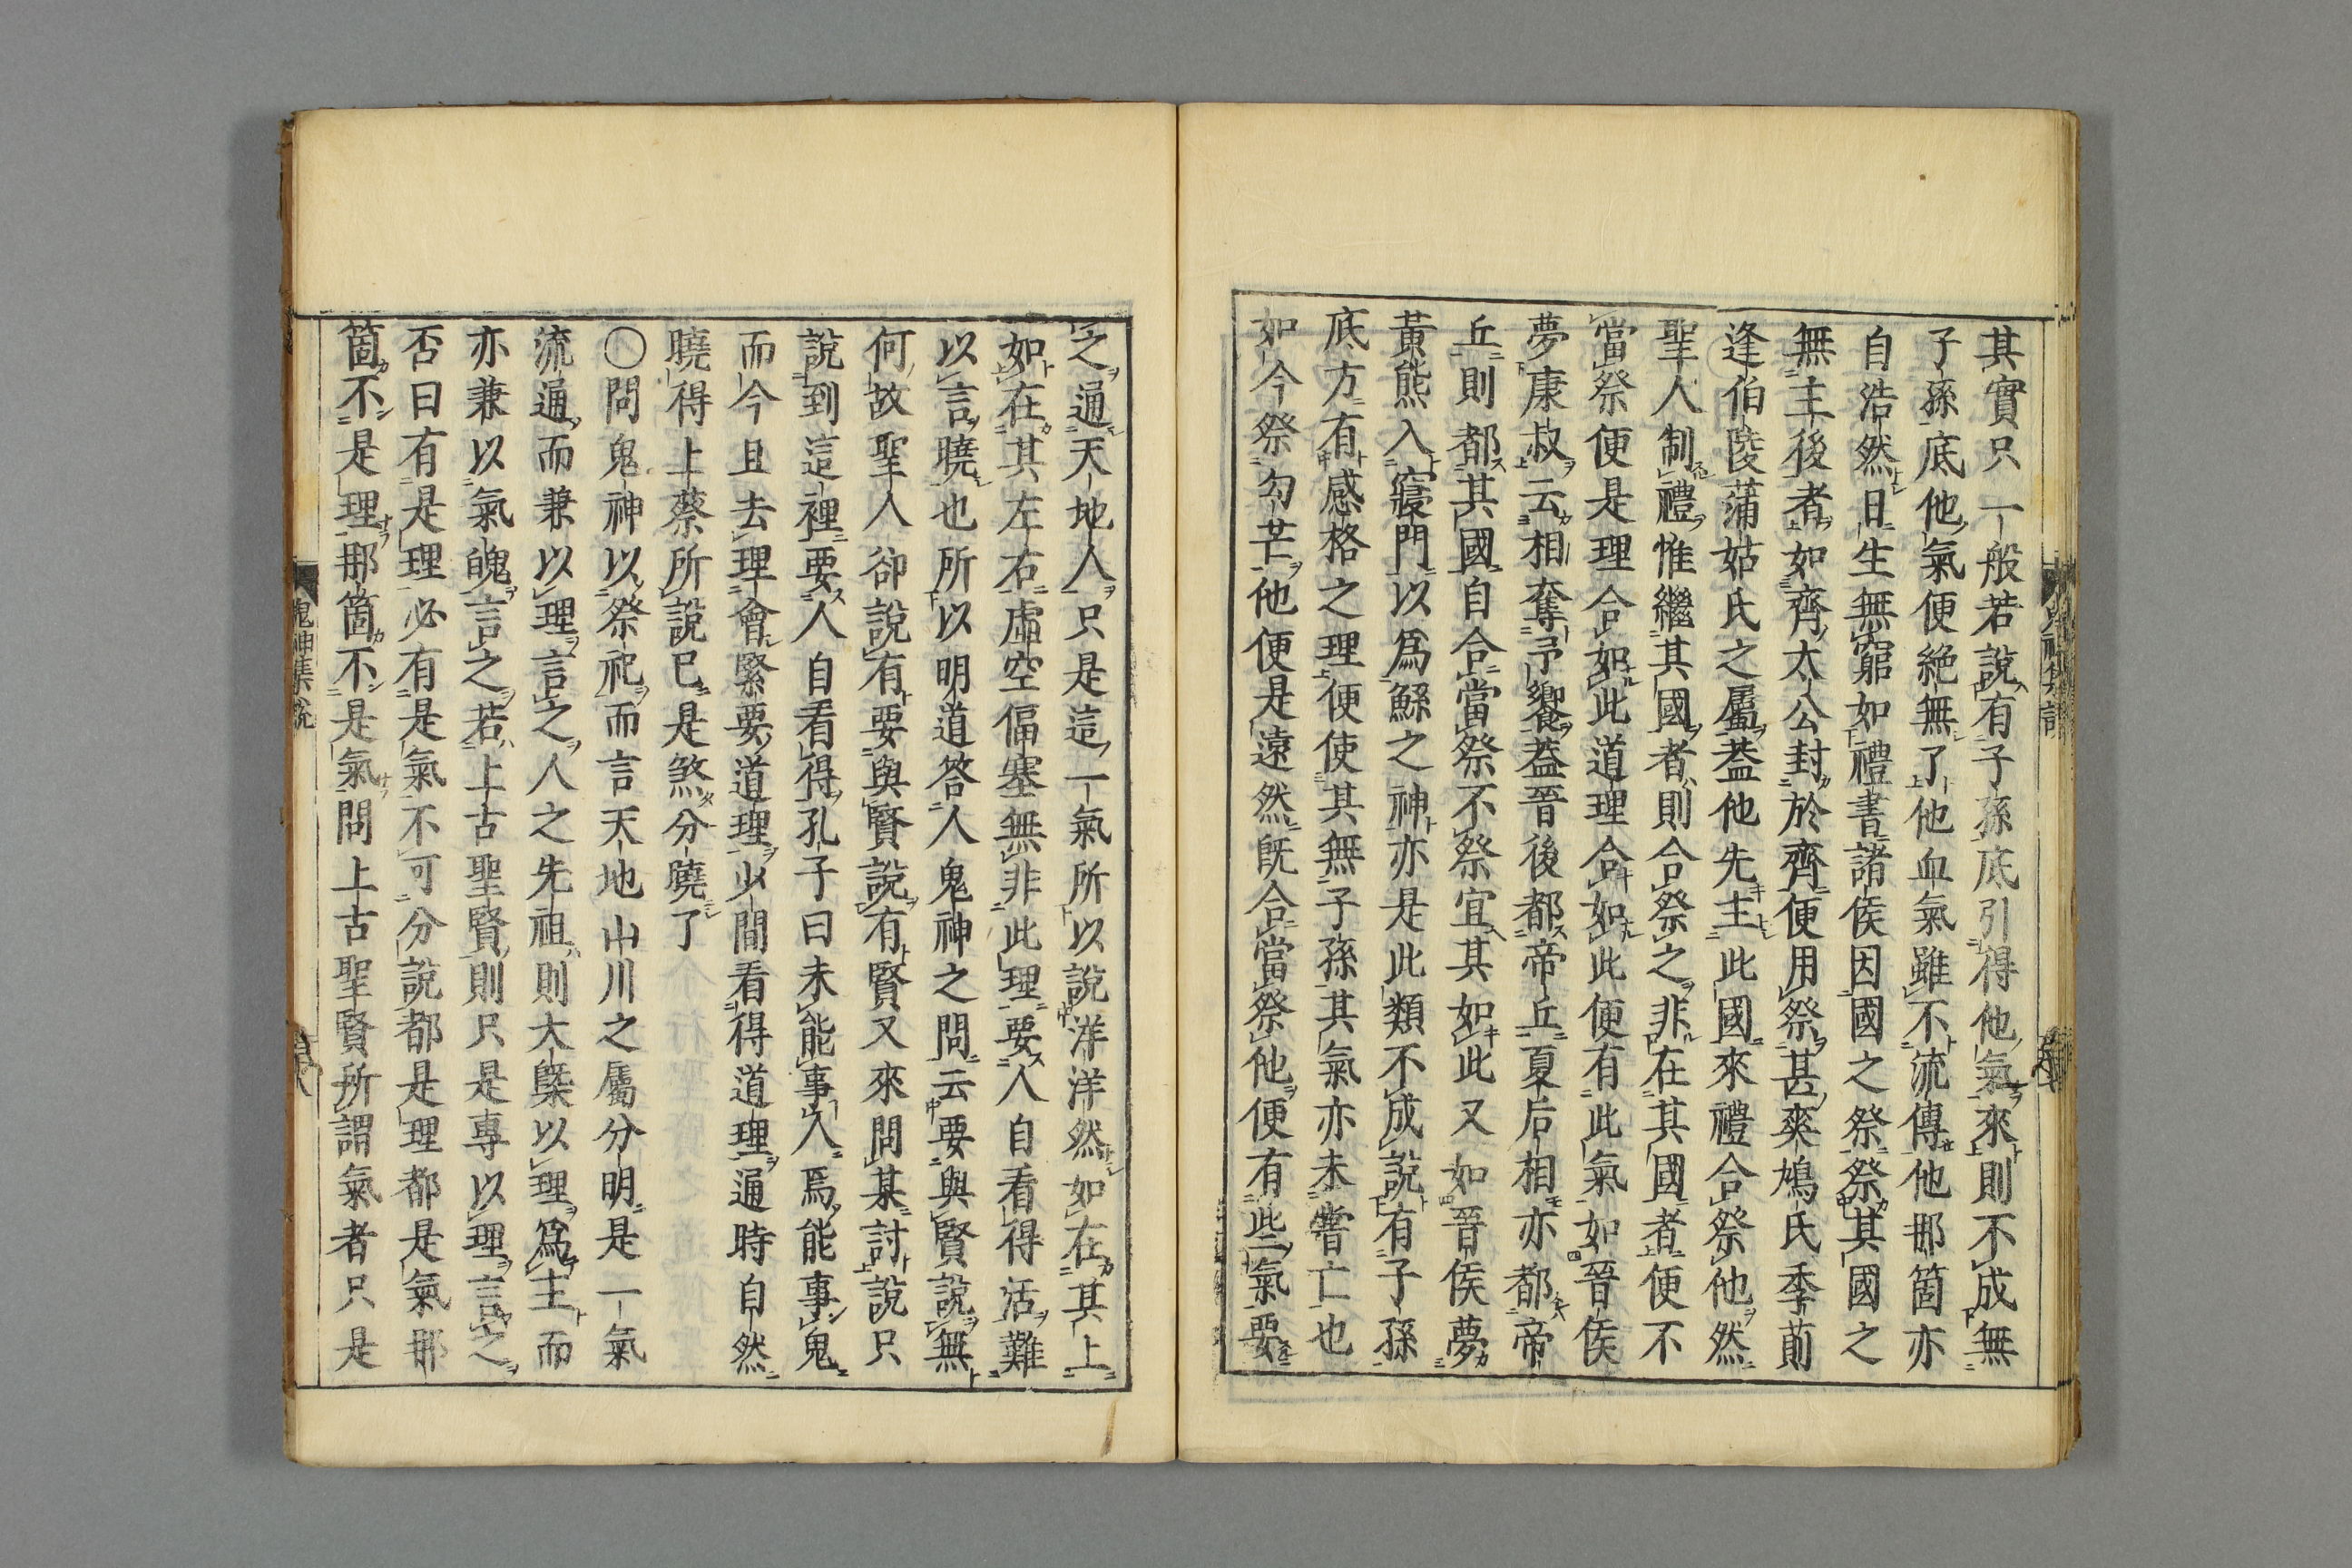 其實只一般若說有子孫底引得他氣來則不成無
子孫底他氣便絶無了他血氣雖不流傳他那箇亦
自浩然日生無窮如禮書諸侯因國之祭祭其國之
無主後者如齊太公封於齊便用祭甚爽鳩氏季萴
逢伯陵蒲姑氏之屬葢他先主此國來禮合祭他然
聖人制禮惟繼其國者則合祭之非在其國者便不
當祭便是理合如此道理合如此便有此氣如晉侯
夢康叔云相奪予饗葢晉後都帝丘夏后相亦都帝
丘則都其國自合當祭不祭宜其如此又如晉侯夢
黃熊入寢門以爲鯀之神亦是此類不成說有子孫
底方有感格之理便使其無子孫其氣亦未嘗亡也
如今祭勾芒他便是遠然旣合當祭他便有些氣要
之通天地人只是這一氣所以說洋洋然如在其上
如在其左右虛空偪塞無非此理要人自看得活難
以言曉也所以明道答人鬼神之問云要與賢說無
何故聖人卻說有要與賢說有賢又來問某討說只
說到這裡要人自看得孔子曰未能事人焉能事鬼
而今且去理會緊要道理少間看得道理通時自然
曉得上蔡所說已是煞分曉了
〇問鬼神以祭祀而言天地山川之屬分明是一氣
流通而兼以理言之人之先祖則大槩以理爲主而
亦兼以氣魄言之若上古聖賢則只是專以理言之
否曰有是理必有是氣不可分說都是理都是氣那
箇不是理那箇不是氣問上古聖賢所謂氣者只是
鬼神集說